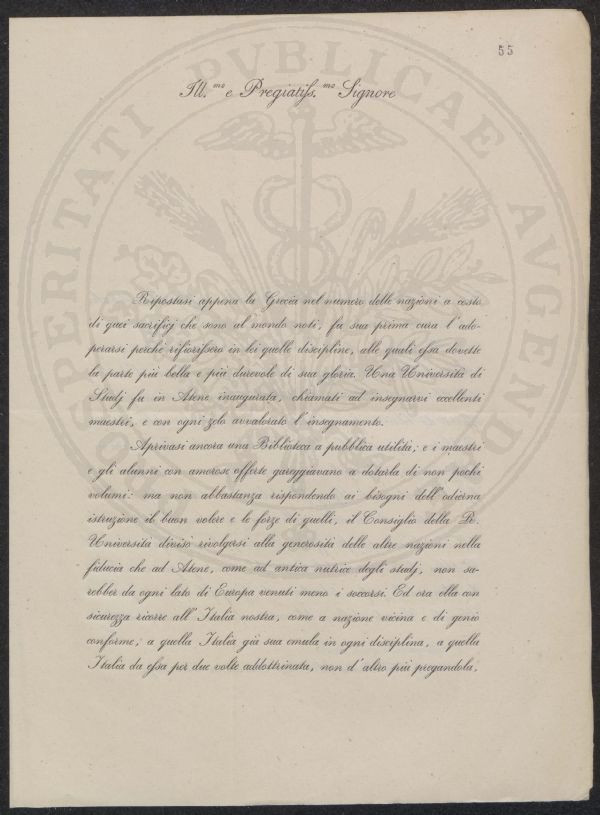 55
Ill.mo e Pregiatiss.mo Signore
Ripostasi appena la Grecia nel numero delle nazioni a costo
di quei sacrificj che sono al mondo noti, fu sua prima cura l'ado-
perarsi perchè rifiorissero in lei quelle discipline, alle quali essa dovette
la parte più bella e più durevole di sua gloria. Una Università di
Studj fu in Atene inaugurata, chiamati ad insegnarvi eccellenti
maestri, e con ogni zelo avvalorato l'insegnamento.
Aprivasi ancora una Biblioteca a pubblica utilità; e i maestri
e gli alunni con amorose offerte gareggiavano a dotarla di non pochi
volumi: ma non abbastanza rispondendo ai bisogni dell'odierna
istruzione il buon volere e le forze di quelli, il Consiglio della Re.
Università divisò rivolgersi alla generosità delle altre nazioni nella
fiducia che ad Atene, come ad antica nutrice degli studj, non sa-
rebber da ogni lato di Europa venuti meno i soccorsi. Ed ora ella con
sicurezza ricorre all'Italia nostra, come a nazione vicina e di genio
conforme; a quella Italia già sua emula in ogni disciplina, a quella
Italia da essa per due volte addottrinata, non d'altro più pregandola,
PROSPERITATI PVBLICAE AVGENDAE